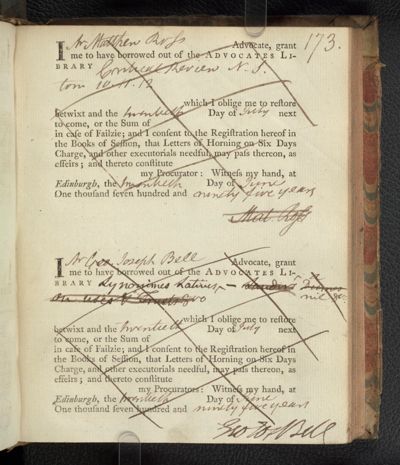 173.
I Mr Matthew Ross Advocate, grant
me to have borrowed out of the ADVOCATES LI-
BRARY Critical Review N. S.
Tom 10. 11. 12
which I oblige me to restore
betwixt and the twentieth Day of July next
to come, or the Sum of
in case of Failzie; and I consent to the Registration hereof in
the Books of Session, that Letters of Horning on Six Days
Charge, and other executorials needful, may pass thereon, as
effeirs; and thereto constitute
my Procurator: Witness my hand, at
Edinburgh, the twentieth Day of June
One thousand seven hundred and ninety five years
Mat. Ross
I Mr Geo. Joseph Bell Advocate, grant
me to have borrowed out of the ADVOCATES LI-
BRARY Synonimes Latines,
which I oblige me to restore
betwixt and the twentieth Day of July next
to come, or the Sum of
in case of Failzie; and I consent to the Registration hereof in
the Books of Session, that Letters of Horning on Six Days
Charge, and other executorials needful, may pass thereon, as
effeirs; and thereto constitute
my Procurators: Witness my hand, at
Edinburgh, the twentieth Day of June
One thousand seven hundred and ninety five years
Geo Jos Bell